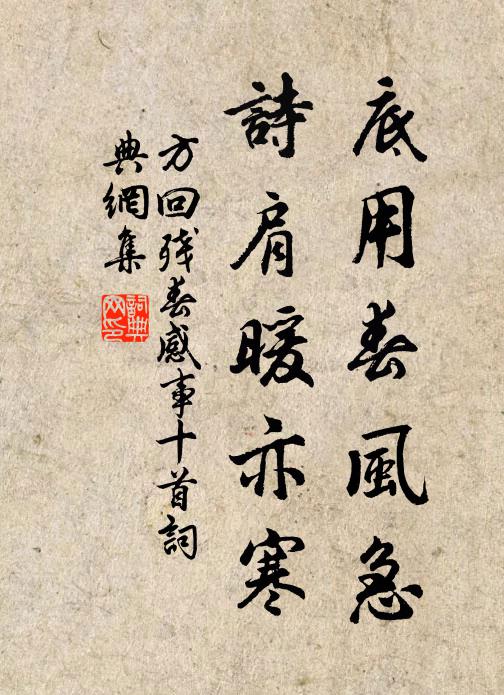 底用春風急
詩肩暖亦寒
方回殘春感事十首詞
典網集
詞典網印